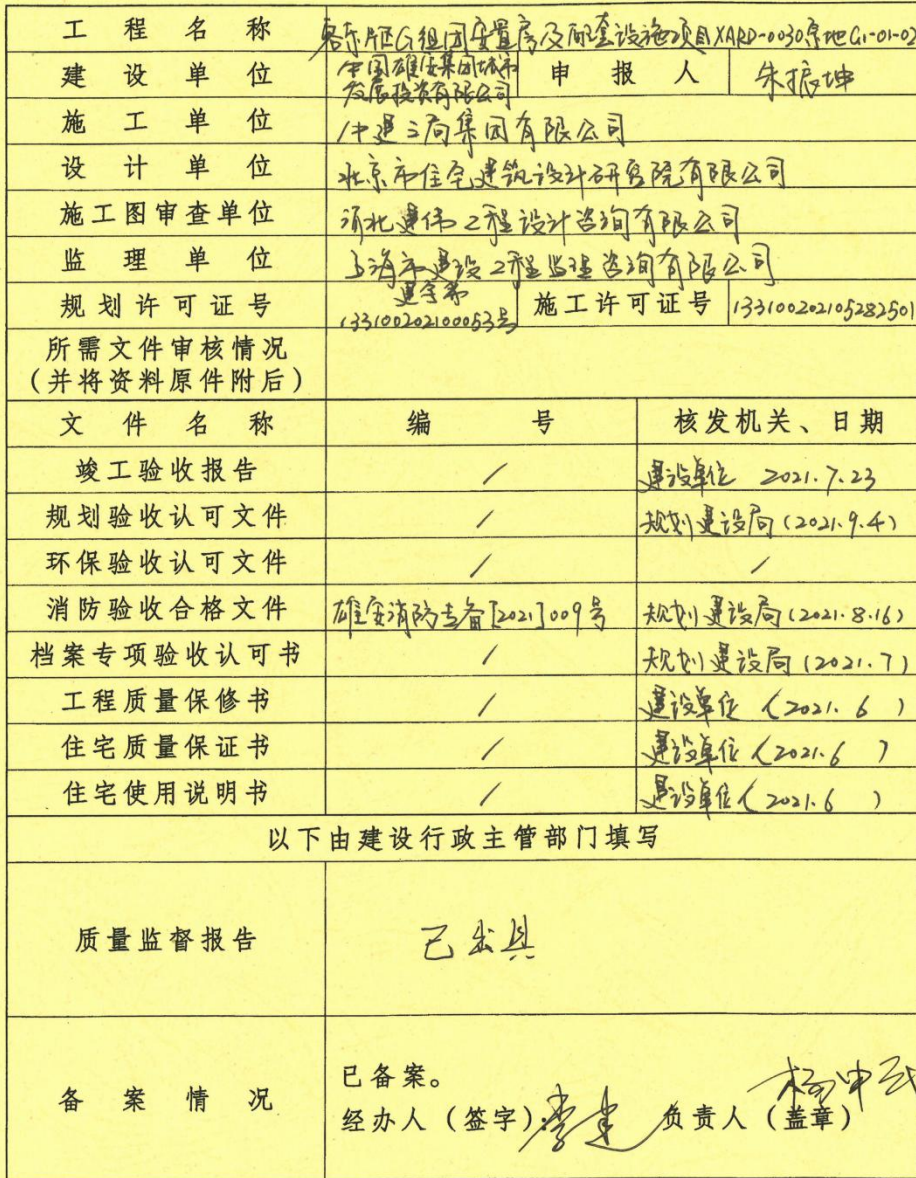 工程名称 容东片区G组团安置房及配套设施项目XARD-0030宗地G1-01-02
建设单位 中国雄安集团城市发展投资有限公司 申报人 朱振坤
施工单位 中建三局集团有限公司
设计单位 北京市住宅建筑设计研究院有限公司
施工图审查单位 河北建伟工程设计咨询有限公司
监理单位 上海市建设工程监理咨询有限公司
规划许可证号 建字第133100202100053号 施工许可证号 133100202105282501
所需文件审核情况
(并将资料原件附后)
文件名称 编号 核发机关、日期
竣工验收报告 / 建设单位 2021.7.23
规划验收认可文件 / 规划建设局(2021.9.4)
环保验收认可文件 / /
消防验收合格文件 雄安消防专备[2021]009号 规划建设局(2021.8.16)
档案专项验收认可书 / 规划建设局(2021.7)
工程质量保修书 / 建设单位(2021.6 )
住宅质量保证书 / 建设单位(2021.6 )
住宅使用说明书 / 建设单位(2021.6 )
以下由建设行政主管部门填写
质量监督报告 已出具
备案情况 已备案。
经办人(签字): 负责人(盖章)